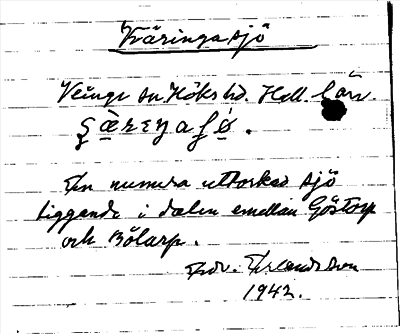 Väringasjö
Veinge sn. Höks hd. Hall. län.
En numera uttorkad sjö
liggande i dalen emellan Göstorp
och Bölarp.
Edv. Erlandsson
1942.